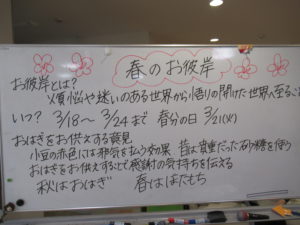 春のお彼岸
お彼岸とは？
煩悩や迷いのある世界から悟りの開けた世界へ至ること
いつ？ 3/18～3/24まで 春分の日 3/21(火)
おはぎをお供えする意見
小豆の赤色には邪気を払う効果 昔は貴重だった砂糖を使う
おはぎをお供えすることで感謝の気持ちを伝える
秋はおはぎ 春はぼたもち